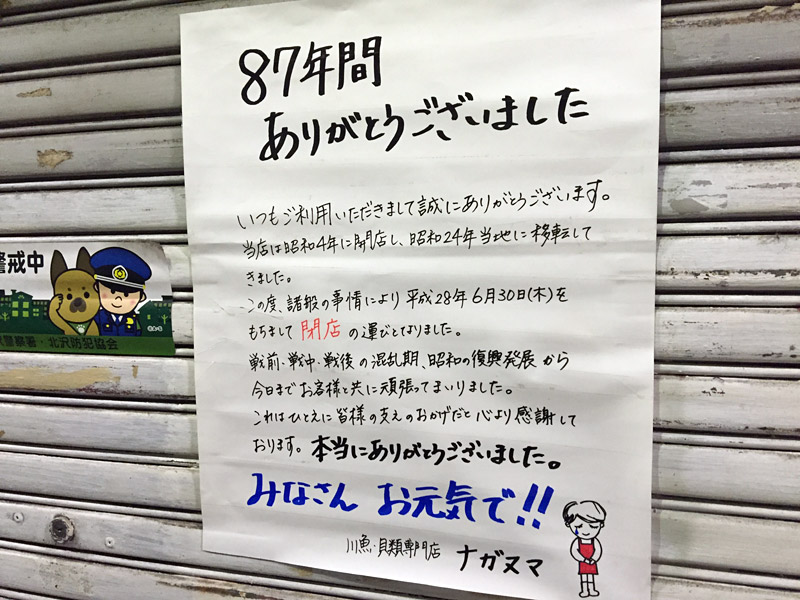 87年間
ありがとうございました
いつもご利用いただきまして誠にありがとうございます。
当店は昭和4年に開店し、昭和24年当地に移転して
きました。
この度、諸般の事情により平成28年6月30日(木)を
もちまして閉店の運びとなりました。
戦前・戦中・戦後の混乱期、昭和の復興発展から
今日までお客様と共に頑張ってまいりました。
これはひとえに皆様の支えのおかげだと心より感謝して
おります。本当にありがとうございました。
みなさん お元気で!!
川魚・貝類専門店 ナガヌマ
警戒中
警察署・北沢防犯協会